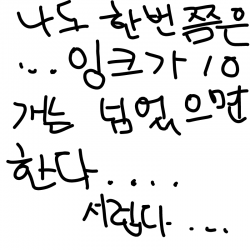 나도 한번쯤은
...잉크가 10
개는 넘었으면
한다....
서럽다...